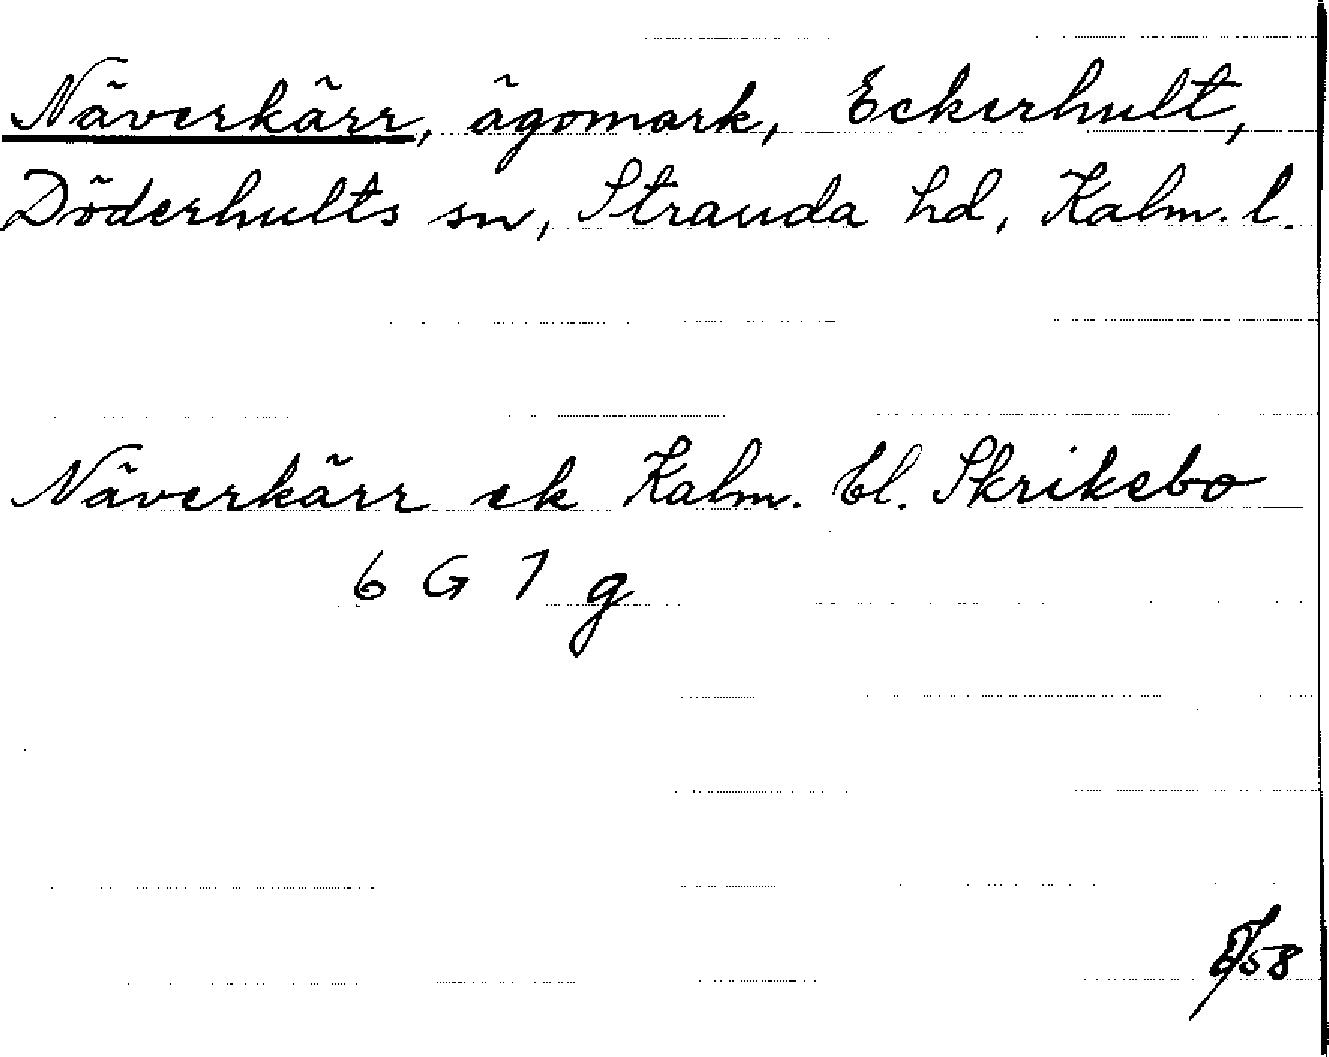 Näverkärr, ägomark, Eckerhult,
Döderhults sn, Stranda hd, Kalm. l.
Näverkärr ek Kalm. bl. Skriksbo
6 G 7 g
/58